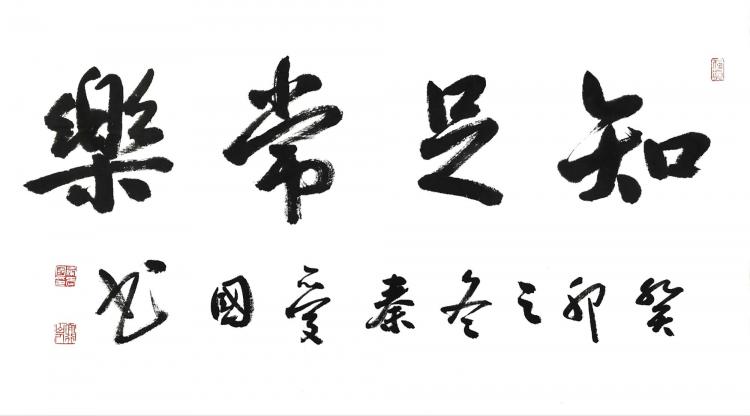 知足常樂
癸卯之冬秦愛國书